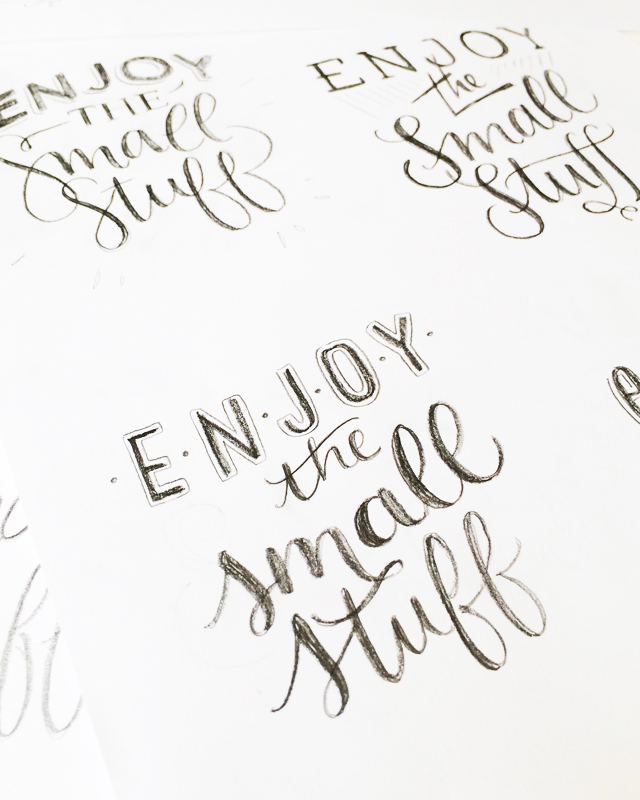 ENJOY
THE
Small
Stuff
ENJOY
the
Small
Stuff
E·N·J·O·Y
the
small
stuff